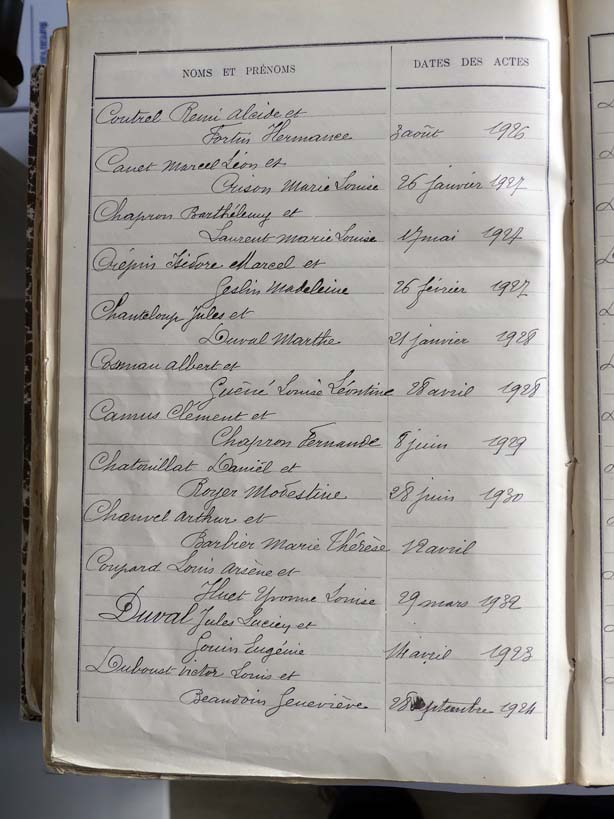 NOMS ET PRÉNOMS DATES DES ACTES
Coutrel Remi Alcide et
Fortin Hermance 3 août 1926
Canet Marcel Léon et
Crison Marie Louise 26 janvier 1927
Chapron Barthélemy et
Laurent Marie Louise 17 mai 1927
Crépin Isidore Marcel et
Geslin Madeleine 26 février 1927
Chanteloup Jules et
Duval Marthe 21 janvier 1928
Cosman Albert et
Guéné Louise Léontine 28 avril 1928
Camus Clément et
Chapron Fernande 8 juin 1929
Chatouillat Daniël et
Royer Modestine 28 juin 1930
Chauvel Arthur et
Barbier Marie Thérèse 12 avril
Coupard Louis Arsène et
Huet Yvonne Louise 29 mars 1932
Duval Jules Lucien et
Gouin Eugénie 14 avril 1923
Duboust Victor Louis et
Beaudoin Geneviève 28 septembre 1924